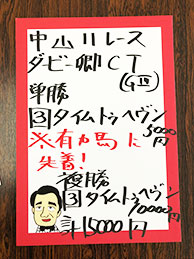 中山11レース
ダービー卿CT
(GⅢ)
単勝
③タイムトゥヘヴン
5000
円
※有力馬に
先着!
複勝
③タイムトゥヘヴン
10000円
計15000円